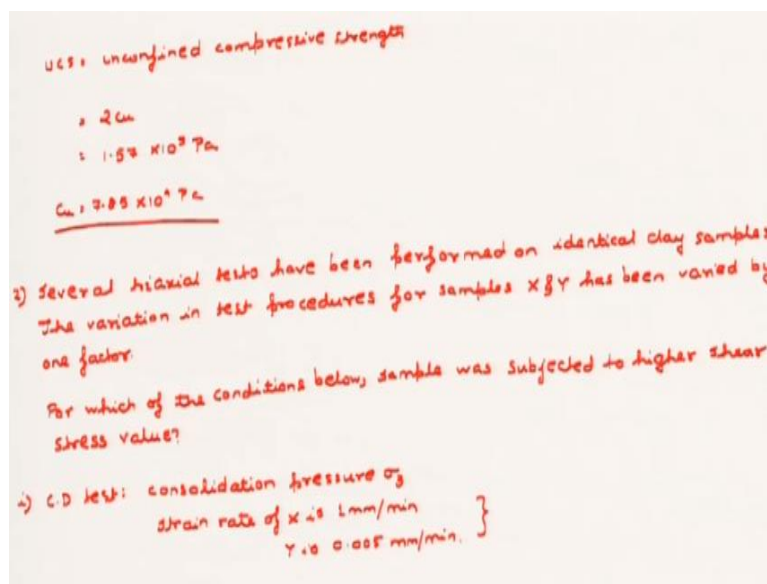 UCS = unconfined compressive strength
= 2Cu
= 1.57 ×10⁵ Pa
Cu = 7.85 ×10⁴ Pa
2) Several triaxial tests have been performed on identical clay samples
The variation in test procedures for samples X & Y has been varied by
one factor.
For which of the conditions below, sample was subjected to higher shear
stress value?
i) C.D test: consolidation pressure σ₃
strain rate of X is 1mm/min
Y is 0.005 mm/min. }